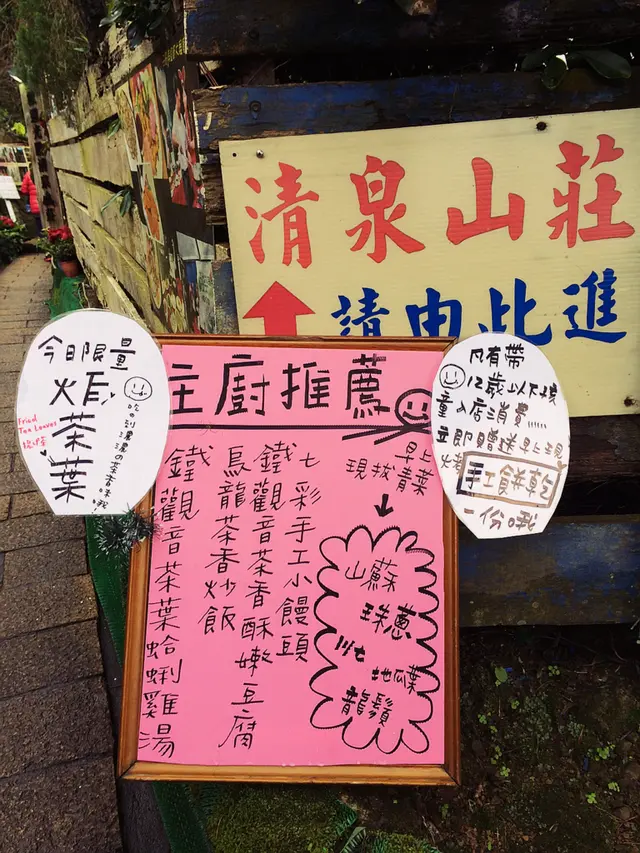 清泉山莊
請由此進
今日限量
炸茶葉
吃的到濃濃の茶香味哦!
Fried
Tea Leaves
主廚推薦
早上
現拔青菜
七彩手工小饅頭
鐵觀音茶香酥嫩豆腐
烏龍茶香炒飯
鐵觀音茶葉蛤蜊雞湯
山蘇
珠蔥
川七
地瓜葉
龍鬚
凡有帶
12歲以下孩
童入店消費
立即贈送早上現
烤
手工餅乾
一份哦